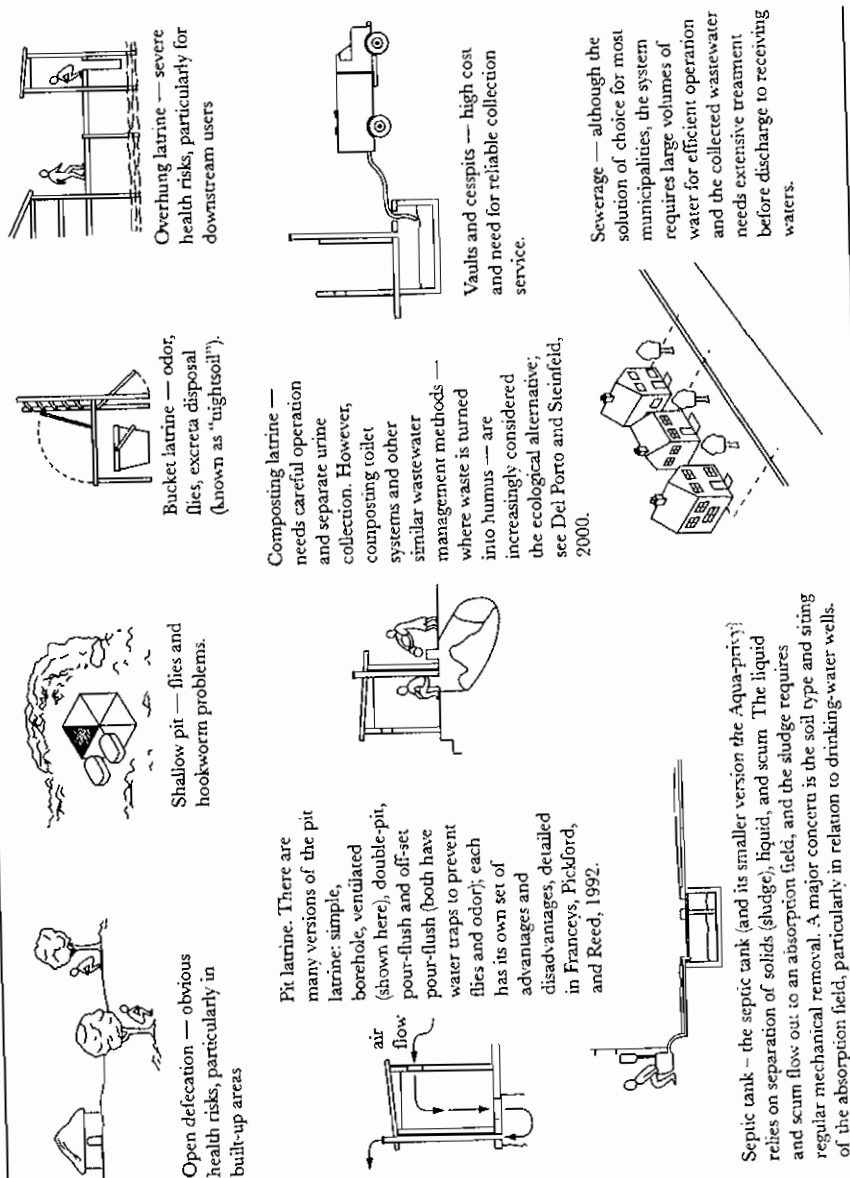 Open defecation — obvious
health risks, particularly in
built-up areas
Shallow pit — flies and
hookworm problems.
Bucket latrine — odor,
flies, excreta disposal
(known as "nightsoil").
Overhung latrine — severe
health risks, particularly for
downstream users
air
flow
Pit latrine. There are
many versions of the pit
latrine: simple,
borehole, ventilated
(shown here), double-pit,
pour-flush and off-set
pour-flush (both have
water traps to prevent
flies and odor); each
has its own set of
advantages and
disadvantages, detailed
in Franceys, Pickford,
and Reed, 1992.
Composting latrine —
needs careful operation
and separate urine
collection. However,
composting toilet
systems and other
similar wastewater
management methods —
where waste is turned
into humus — are
increasingly considered
the ecological alternative;
see Del Porto and Steinfeld,
2000.
Vaults and cesspits — high cost
and need for reliable collection
service.
Septic tank – the septic tank (and its smaller version the Aqua-privy)
relies on separation of solids (sludge), liquid, and scum The liquid
and scum flow out to an absorption field, and the sludge requires
regular mechanical removal. A major concern is the soil type and siting
of the absorption field, particularly in relation to drinking-water wells.
Sewerage — although the
solution of choice for most
municipalities, the system
requires large volumes of
water for efficient operation
and the collected wastewater
needs extensive treatment
before discharge to receiving
waters.